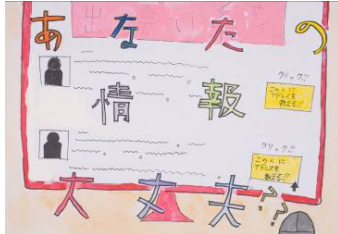 あなたの
クリック!!
この人に
アドレスを
教える!!
情報
クリック!!
この人に
アドレスを
教える!!
大丈夫??